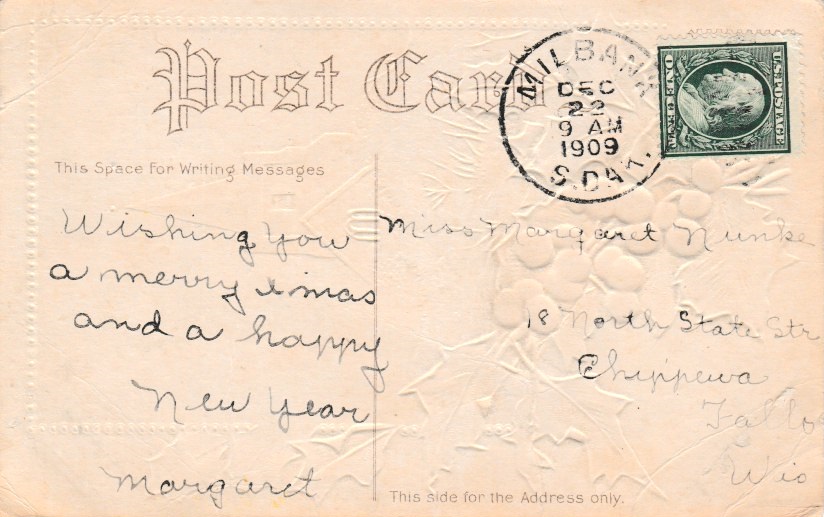 Post Card
MILBANK
DEC
22
9 AM
1909
S. DAK.
U.S. POSTAGE
ONE CENT
This Space for Writing Messages
Wishing You
a merry xmas
and a happy
New Year
Margaret
Miss Margaret Nunke
18 North State Str
Chippewa
Falls
Wis
This side for the Address only.